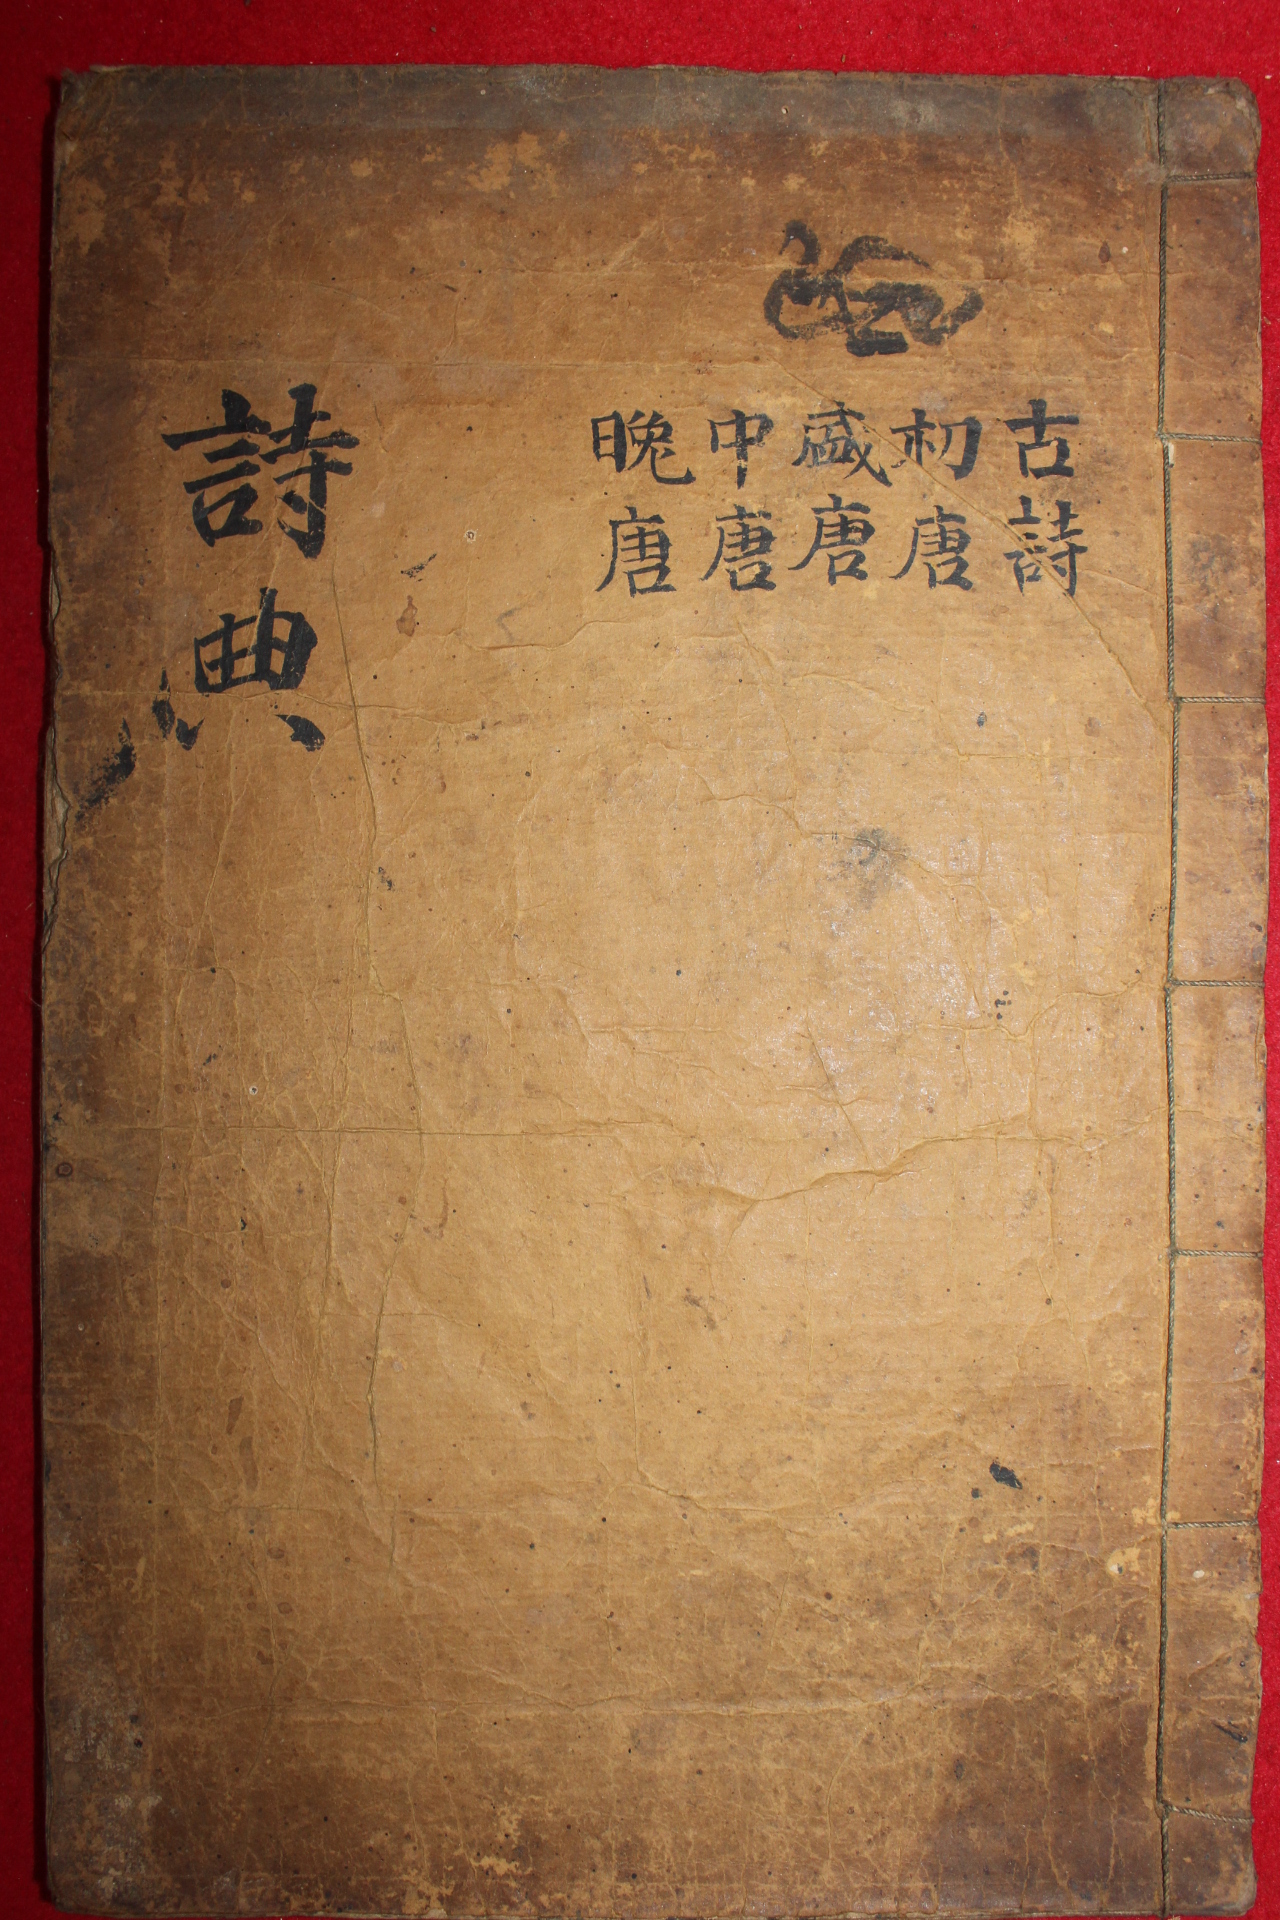 古詩
初唐
盛唐
中唐
晩唐
詩典